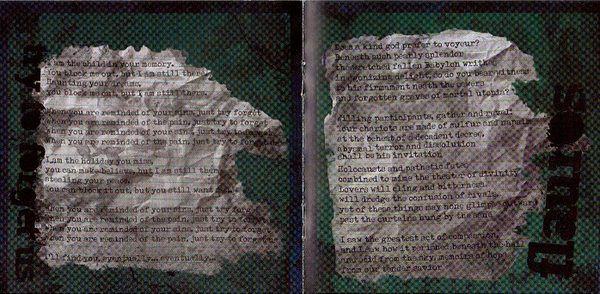 I am the child in your memory.
You block me out, but I am still there
Haunting your dreams,
You block me out, but I am still there.
When you are reminded of your sins, just try to forget
When you are reminded of the pain, just try to forget
When you are reminded of your sins, just try to forget
When you are reminded of the pain, just try to forget
I am the holiday you miss,
you can make believe, but I am still there
stealing your
You can block it out, but you still
When you are reminded of your sins, just try
When you are reminded of the pain, just try to
When you are reminded of your sins, just try to forget
When you are reminded of the pain, just try to forget
I'll find you, eventually... eventually...
Does a kind god prefer to voyeur?
Beneath such pearly splendor
the wretched fallen Babylon writhes
in agonizing delight, so do you bear witness
to his firmament neath the sewers
and forgotten graves of mortal utopia?
Willing participants, gather and revel:
Your chariots are made of sulfur and
at the behest of decadent decree,
abysmal terror and dissolution
shall be his invitation
Holocausts and pathetic fate
combined to mime the theater of divinity
Lovers will cling and bitterness
will dredge the confusion of rivals,
yet of these things may none glimpse
past the curtains hung by the
I saw the greatest act of compassion,
and I saw how it perished beneath the
and acid from the sky, memoirs of
from our tender savior